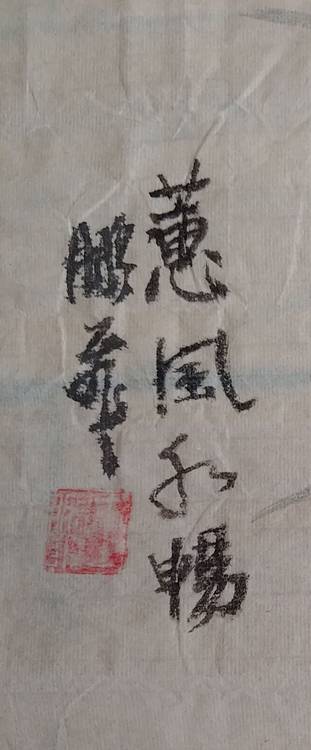 蕙風和暢
鵬